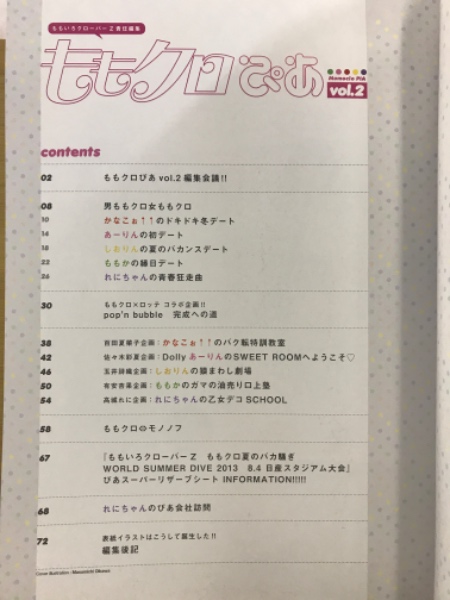 ももいろクローバーZ責任編集
ももクロぴあ
Momoclo PIA
vol.2
contents
02 ももクロぴあ vol.2 編集会議!!
08 男ももクロ女ももクロ
10 かなこぉ↑↑のドキドキ冬デート
14 あーりんの初デート
18 しおりんの夏のバカンスデート
22 ももかの縁日デート
26 れにちゃんの青春狂走曲
30 ももクロ×ロッテ コラボ企画!!
pop'n bubble 完成への道
38 百田夏菜子企画:かなこぉ↑↑のバク転特訓教室
42 佐々木彩夏企画:Dolly あーりんのSWEET ROOMへようこそ♡
46 玉井詩織企画:しおりんの猿まわし劇場
50 有安杏果企画:ももかのガマの油売り口上塾
54 高城れに企画:れにちゃんの乙女デコ SCHOOL
58 ももクロ⇔モノノフ
67 『ももいろクローバーZ ももクロ夏のバカ騒ぎ
WORLD SUMMER DIVE 2013 8.4 日産スタジアム大会』
ぴあスーパーリザーブシート INFORMATION!!!!!
68 れにちゃんのぴあ会社訪問
72 表紙イラストはこうして誕生した!!
編集後記
Cover Illustration: